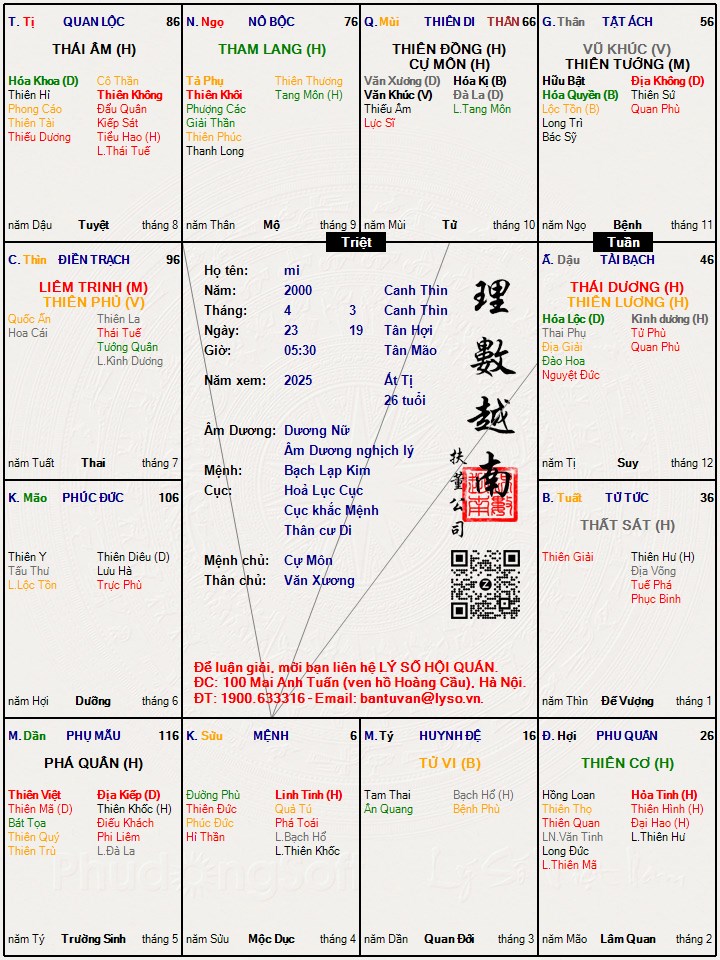 T. Tị QUAN LỘC 86
THÁI ÂM (H)
Hóa Khoa (D) Cô Thần
Thiên Hỉ Thiên Không
Phong Cáo Đẩu Quân
Thiên Tài Kiếp Sát
Thiếu Dương Tiểu Hao (H)
L.Thái Tuế
năm Dậu Tuyệt tháng 8
N. Ngọ NÔ BỘC 76
THAM LANG (H)
Tả Phụ Thiên Thương
Thiên Khôi Tang Môn (H)
Phượng Các
Giải Thần
Thiên Phúc
Thanh Long
năm Thân Mộ tháng 9
Q. Mùi THIÊN DI THÂN 66
THIÊN ĐỒNG (H)
CỰ MÔN (H)
Văn Xương (D) Hóa Kị (B)
Văn Khúc (V) Đà La (D)
Thiếu Âm L.Tang Môn
Lực Sĩ
năm Mùi Tử tháng 10
G. Thân TẬT ÁCH 56
VŨ KHÚC (V)
THIÊN TƯỚNG (M)
Hữu Bật Địa Không (D)
Hóa Quyền (B) Thiên Sứ
Lộc Tồn (B) Quan Phủ
Long Trì
Bác Sỹ
năm Ngọ Bệnh tháng 11
Triệt
Tuần
C. Thìn ĐIỀN TRẠCH 96
LIÊM TRINH (M)
THIÊN PHỦ (V)
Quốc Ấn Thiên La
Hoa Cái Thái Tuế
Tướng Quân
L.Kình Dương
năm Tuất Thai tháng 7
Họ tên: mi
Năm: 2000 Canh Thìn
Tháng: 4 3 Canh Thìn
Ngày: 23 19 Tân Hợi
Giờ: 05:30 Tân Mão
Năm xem: 2025 Ất Tị
26 tuổi
Âm Dương: Dương Nữ
Âm Dương nghịch lý
Mệnh: Bạch Lạp Kim
Cục: Hoả Lục Cục
Cục khắc Mệnh
Thân cư Di
Mệnh chủ: Cự Môn
Thân chủ: Văn Xương
理數越南
扶董公司
Để luận giải, mời bạn liên hệ LÝ SỐ HỘI QUÁN.
ĐC: 100 Mai Anh Tuấn (ven hồ Hoàng Cầu), Hà Nội.
ĐT: 1900.633316 - Email: bantuvan@lyso.vn.
Ấ. Dậu TÀI BẠCH 46
THÁI DƯƠNG (H)
THIÊN LƯƠNG (H)
Hóa Lộc (D) Kình dương (H)
Thai Phụ Tử Phù
Địa Giải Quan Phù
Đào Hoa
Nguyệt Đức
năm Tị Suy tháng 12
K. Mão PHÚC ĐỨC 106
Thiên Y Thiên Diêu (D)
Tấu Thư Lưu Hà
L.Lộc Tồn Trực Phù
năm Hợi Dưỡng tháng 6
B. Tuất TỬ TỨC 36
THẤT SÁT (H)
Thiên Giải Thiên Hư (H)
Địa Võng
Tuế Phá
Phục Binh
năm Thìn Đế Vượng tháng 1
M. Dần PHỤ MẪU 116
PHÁ QUÂN (H)
Thiên Việt Địa Kiếp (D)
Thiên Mã (D) Thiên Khốc (H)
Bát Tọa Điếu Khách
Thiên Quý Phi Liêm
Thiên Trù L.Đà La
năm Tý Trường Sinh tháng 5
K. Sửu MỆNH 6
Đường Phù Linh Tinh (H)
Thiên Đức Quả Tú
Phúc Đức Phá Toái
Hỉ Thần L.Bạch Hổ
L.Thiên Khốc
năm Sửu Mộc Dục tháng 4
M. Tý HUYNH ĐỆ 16
TỬ VI (B)
Tam Thai Bạch Hổ (H)
Ân Quang Bệnh Phù
năm Dần Quan Đới tháng 3
Đ. Hợi PHU QUÂN 26
THIÊN CƠ (H)
Hồng Loan Hỏa Tinh (H)
Thiên Thọ Thiên Hình (H)
Thiên Quan Đại Hao (H)
LN.Văn Tinh L.Thiên Hư
Long Đức
L.Thiên Mã
năm Mão Lâm Quan tháng 2